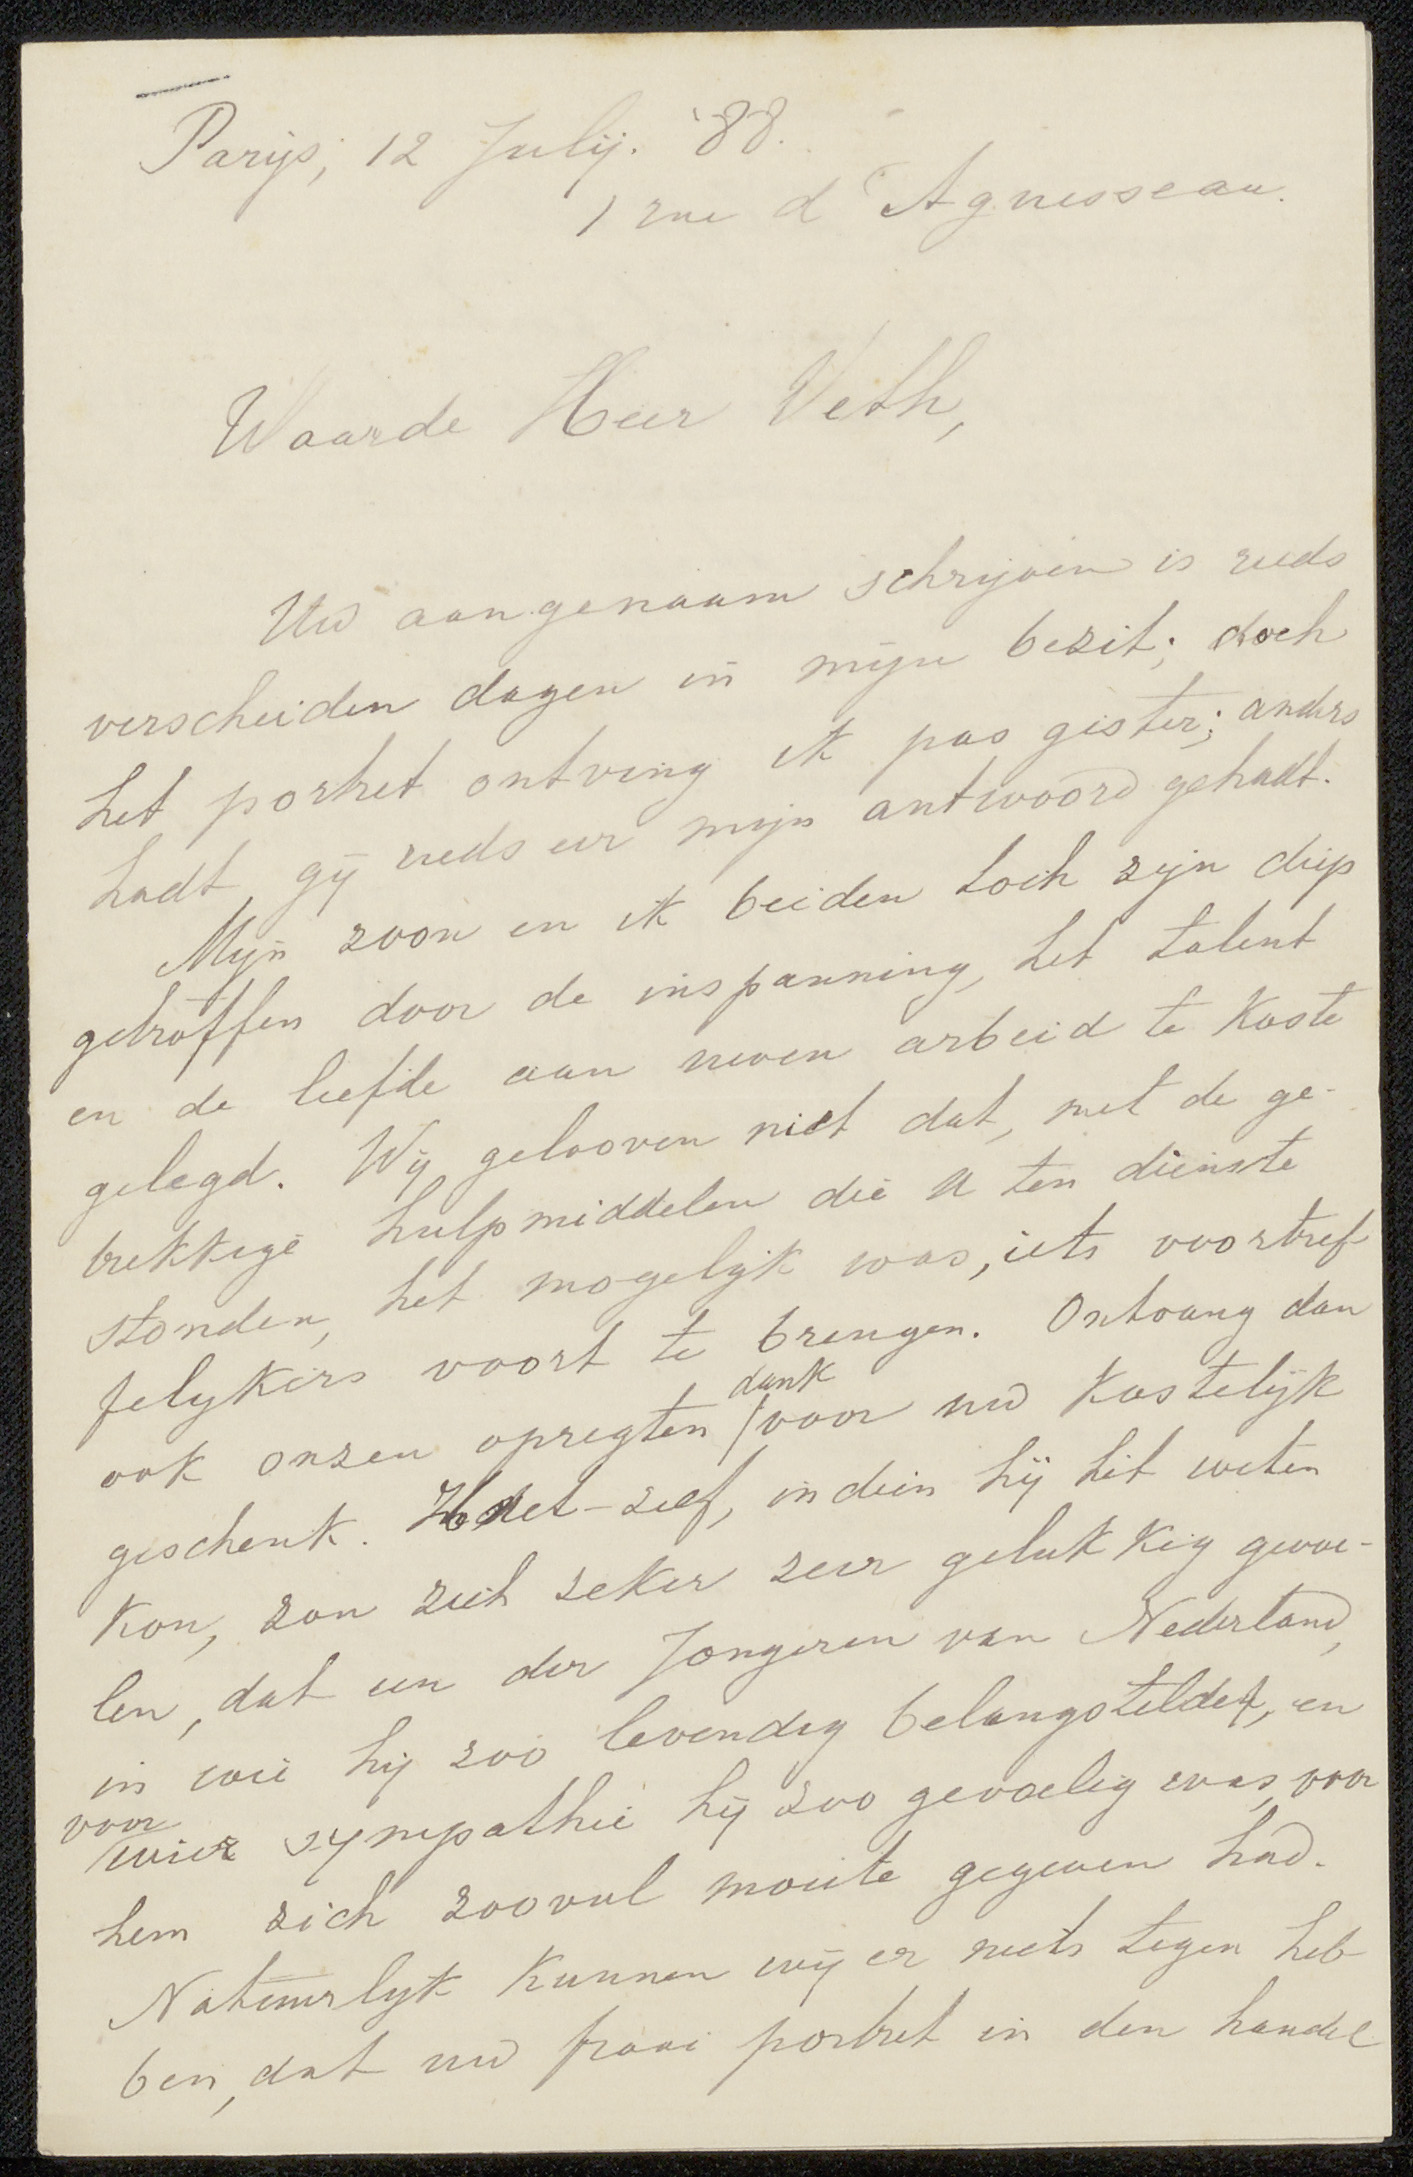 Parijs, 12 Julij. '88.
1 rue d'Aguesseau.
Waarde Heer Veth,
Uw aangenaam schrijven is reeds
verscheiden dagen in mijn bezit; doch
het portret ontving ik pas gister; anders
hadt gij reeds eer mijn antwoord gehadt.
Mijn zoon en ik beiden toch zijn diep
getroffen door de inspanning, het talent
en de liefde aan uwen arbeid te koste
gelegd. Wij gelooven niet dat, met de ge-
brekkige hulpmiddelen die U ten dienste
stonden, het mogelijk was, iets voortref-
felijkers voort te brengen. Ontvang dan
ook onzen opregten dank voor uw kostelijk
geschenk. -zelf, indien hij hit weten
kon, zou zich zeker zeer gelukkig gevoe-
len, dat een der Jongeren van Nederland,
in wie hij zoo levendig belangstelde, en
voor wier sympathie hij zoo gevoelig was, voor
hem zich zooveel moeite gegeven had.
Natuurlijk kunnen wij er niets tegen heb-
ben, dat uw fraai portret in den handel